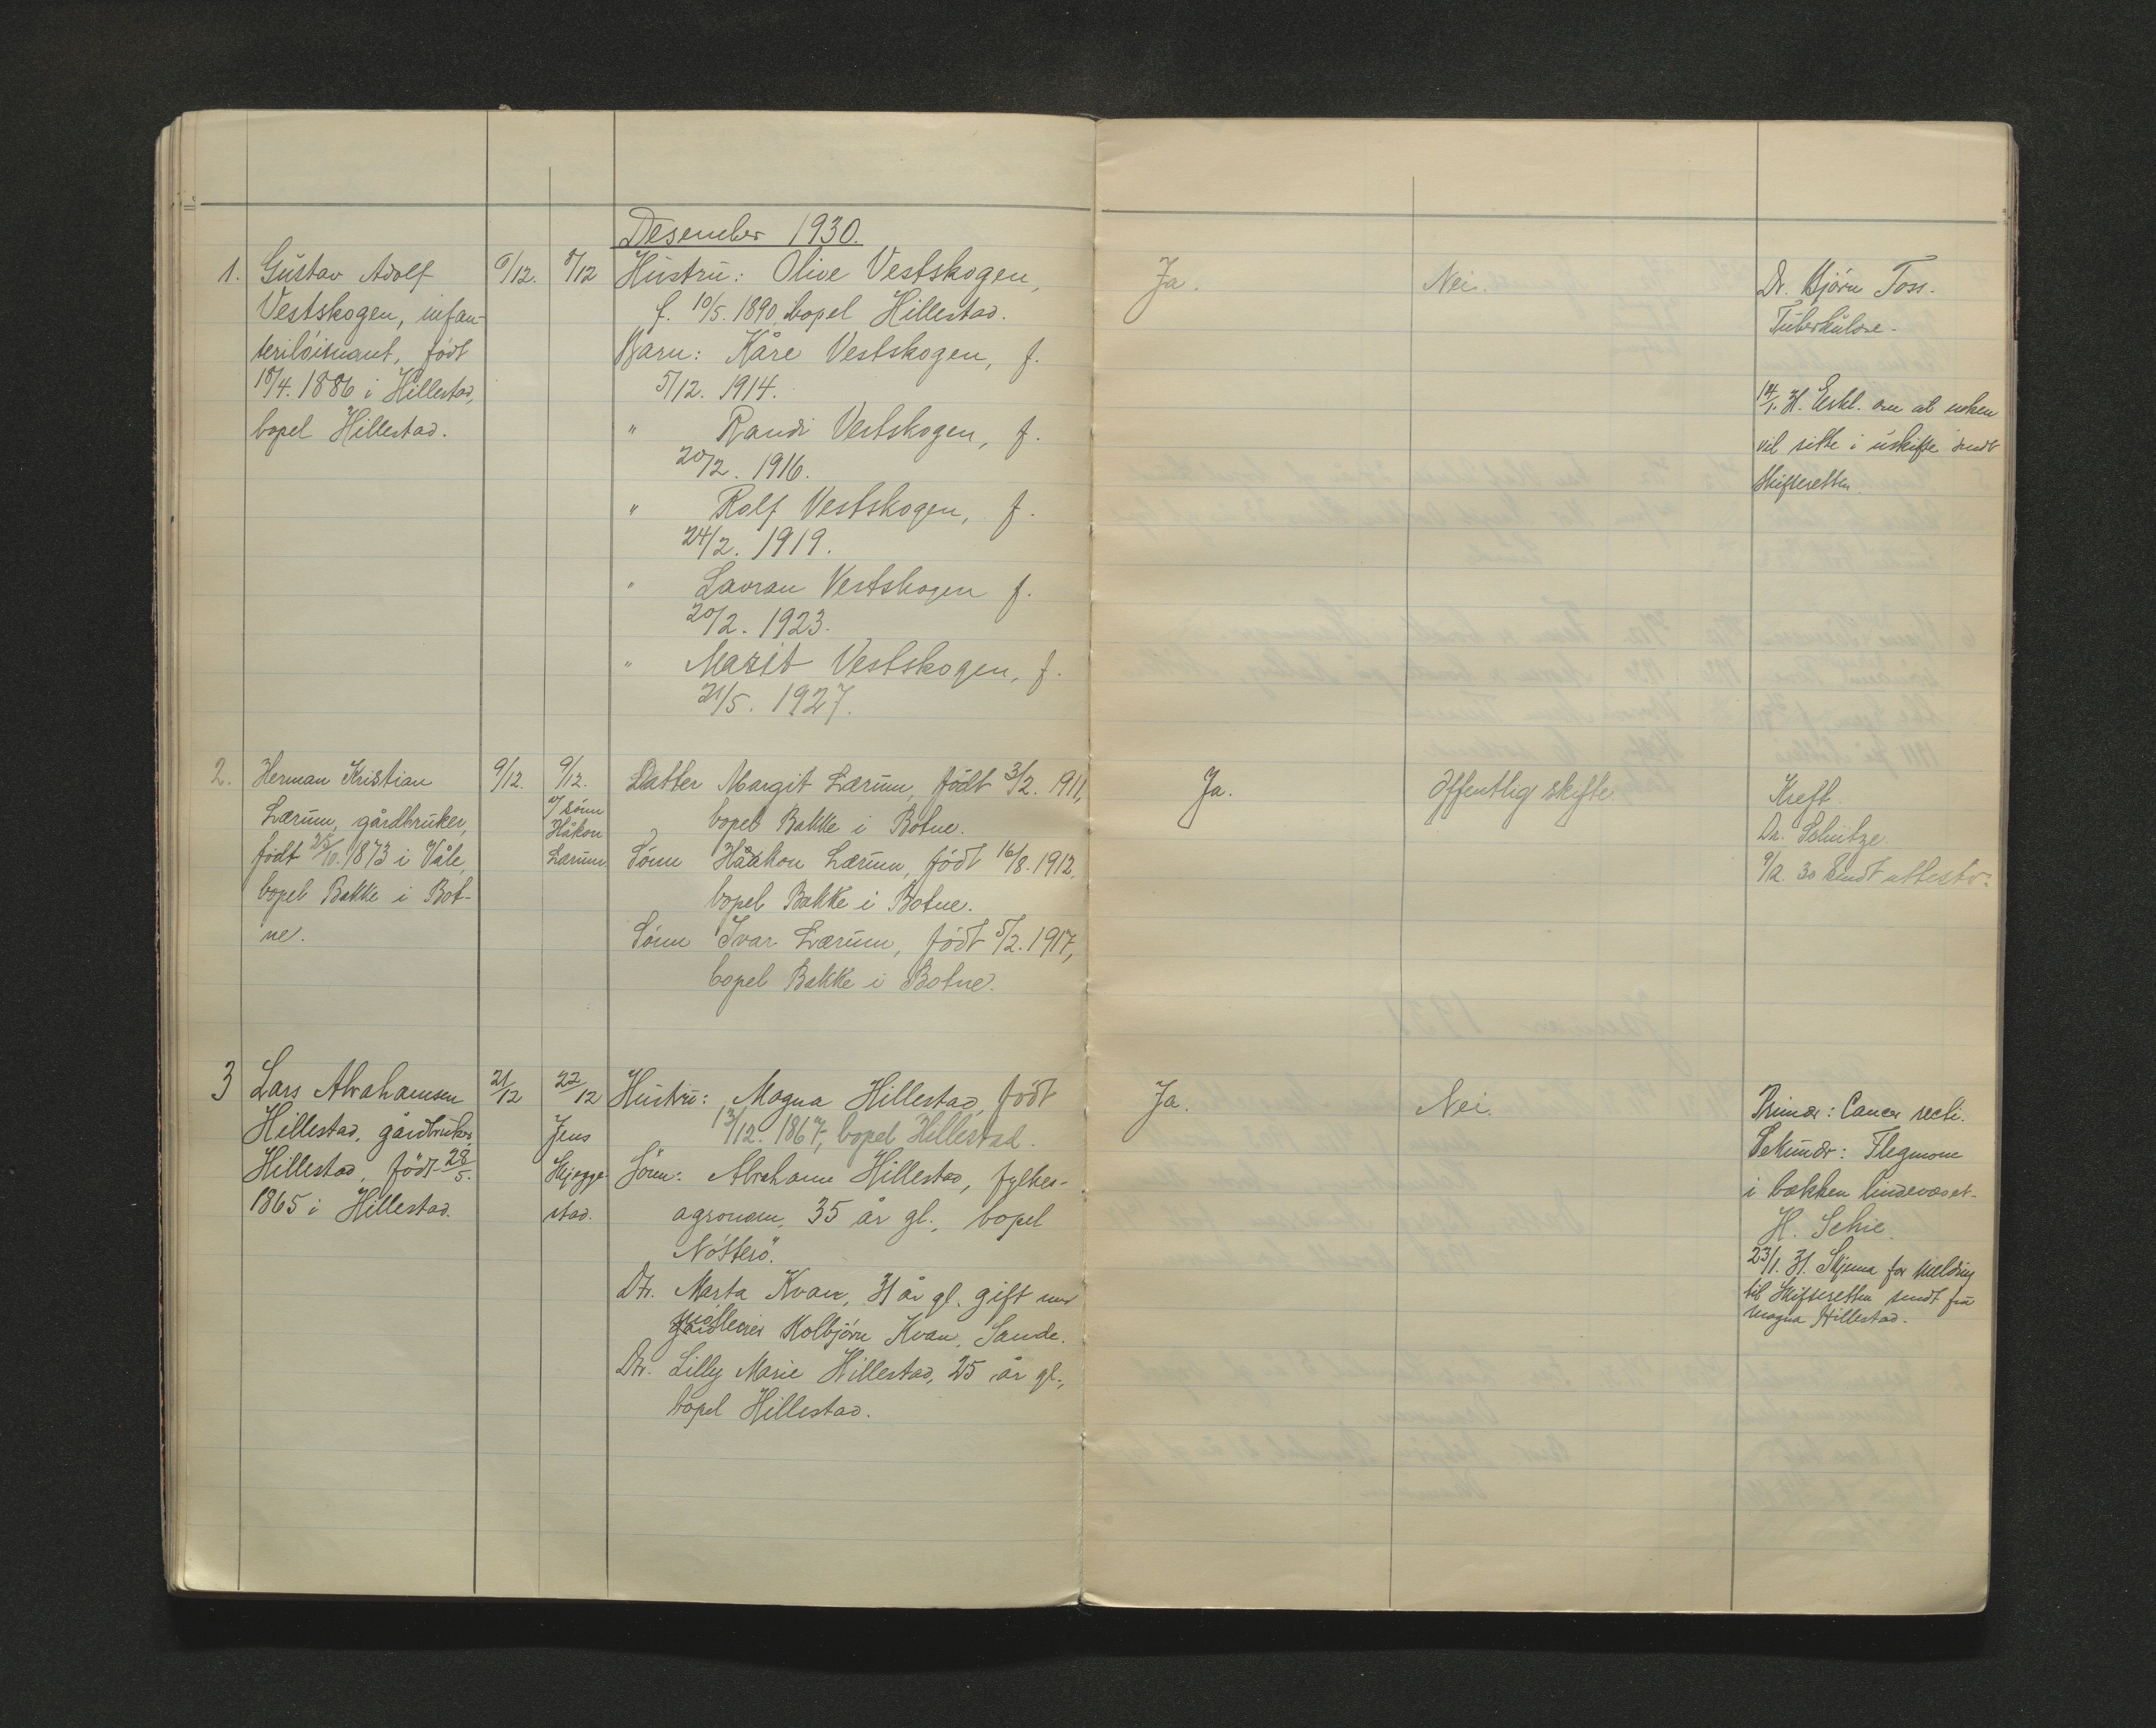 Desember 1930.
1. Gustav Adolf
Vestskogen, infan-
teriløitnant, født
18/4. 1886 i Hillestad,
bopel Hillestad.
6/12. 8/12
Hustru: Olive Vestskogen,
f. 10/5. 1890, bopel Hillestad.
Barn: Kåre Vestskogen, f.
5/12. 1914.
" Randi Vestskogen, f.
20/2. 1916.
" Rolf Vestskogen, f.
24/2. 1919.
" Lavran Vestskogen f.
20/2. 1923.
" Marit Vestskogen, f.
21/5. 1927.
Ja.
Nei.
Dr. Bjørn Foss.
Tuberkulose.
14/1. 31. Erkl. om at enken
vil sitte i uskifte sendt
skifteretten.
2. Herman Kristian
Lærum, gårdbruker,
født 25/10. 1873 i Våle,
bopel Bakke i Bot-
ne.
9/12.
9/12.
v/ sønn
Håkon
Lærum
Datter Margit Lærum, født 3/2. 1911,
bopel Bakke i Botne.
Sønn Håkon Lærum, født 16/8. 1912,
bopel Bakke i Botne.
Sønn Ivar Lærum, født 5/2. 1917,
bopel Bakke i Botne.
Ja.
Offentlig skifte
Kreft.
Dr. Schultze
9/12. 30 sendt attest
3 Lars Abrahamsen
Hillestad, gårdbruker,
Hillestad, født 28/5.
1865 i Hillestad.
21/12
22/12
Jens
Skjegge-
stad.
Hustru: Magna Hillestad, født
13/12. 1867, bopel Hillestad.
Sønn: Abraham Hillestad, fylkes-
agronom, 35 år gl., bopel
Nøtterø.
Dtr. Marta Kvan, 31 år gl. gift med
Kolbjørn Kvan, Sande.
Dtr. Lilly Marie Hillestad, 25 år gl.,
bopel Hillestad.
Ja.
Nei.
Primær: Cancer recti.
Sekundær: Flegmone
i bækken bindevævet.
H. Schie.
23/1. 31. Skjema for melding
til skifteretten sendt fru
Magna Hillestad.